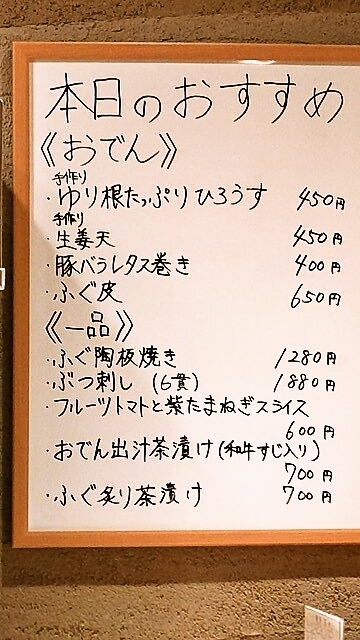 本日のおすすめ
《おでん》
手作り
・ゆり根たっぷりひろうす 450円
手作り
・生姜天 450円
・豚バラレタス巻き 400円
・ふぐ皮 650円
《一品》
・ふぐ陶板焼き 1280円
・ぶつ刺し (6貫) 1880円
・フルーツトマトと紫たまねぎスライス
600円
・おでん出汁茶漬け(和牛すじ入り)
700円
・ふぐ炙り茶漬け 700円